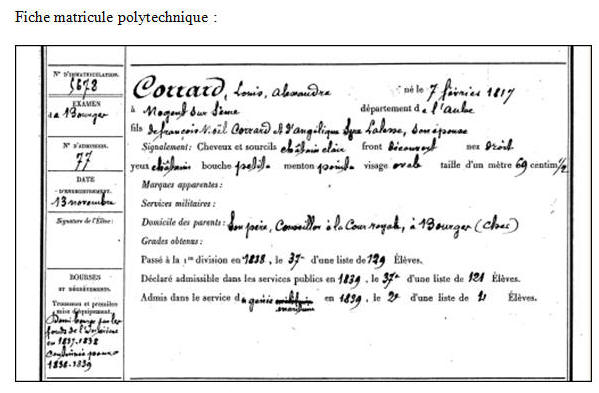 Fiche matricule polytechnique :
N° D'IMMATRICULATION.
5678
EXAMEN
de 1837 à Bourges
N° D'ADMISSION.
77
DATE
D'ENREGISTREMENT.
13 novembre
Signature de l'Élève:
BOURSES
ET DÉGRÈVEMENTS.
Trousseau et première
mise d'équipement.
Demi bourse sur les
fonds de l'Intérieur
en 1837-1838
Continuée pour
1838-1839
Corrard, Louis, Alexandre né le 7 février 1817
à Nogent sur Seine département de l'Aube
fils de françois Noël Corrard et d'angélique Lalesse, son épouse
Signalement: Cheveux et sourcils châtain clair front découvert nez droit
yeux châtains bouche petite menton pointu visage ovale taille d'un mètre 69 centim. 1/2
Marques apparentes :
Services militaires :
Domicile des parents: Son père, Conseiller à la Cour royale, à Bourges (Cher)
Grades obtenus:
Passé à la 1re division en 1838, le 37e d'une liste de 129 Élèves.
Déclaré admissible dans les services publics en 1839, le 37e d'une liste de 121 Élèves.
Admis dans le service du génie maritime en 1839, le 2e d'une liste de Élèves.